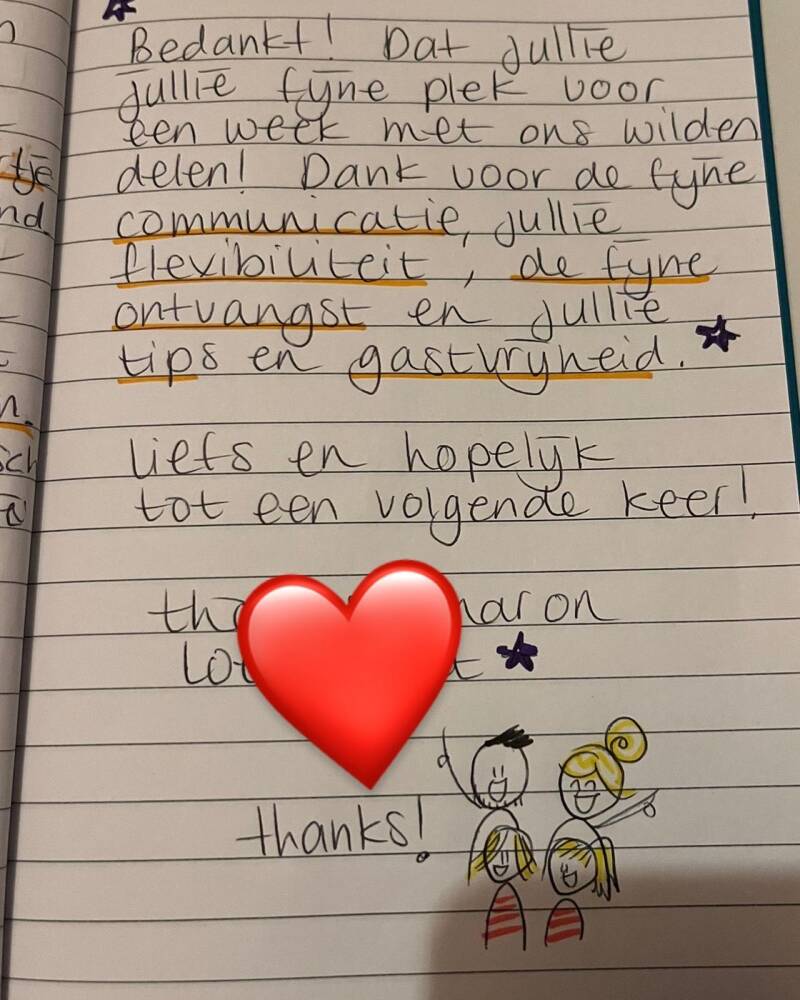 Bedankt! Dat jullie
jullie fijne plek voor
een week met ons wilden
delen! Dank voor de fijne
communicatie, jullie
flexibiliteit, de fijne
ontvangst en jullie
tips en gastvrijheid.
liefs en hopelijk
tot een volgende keer!
thanks!